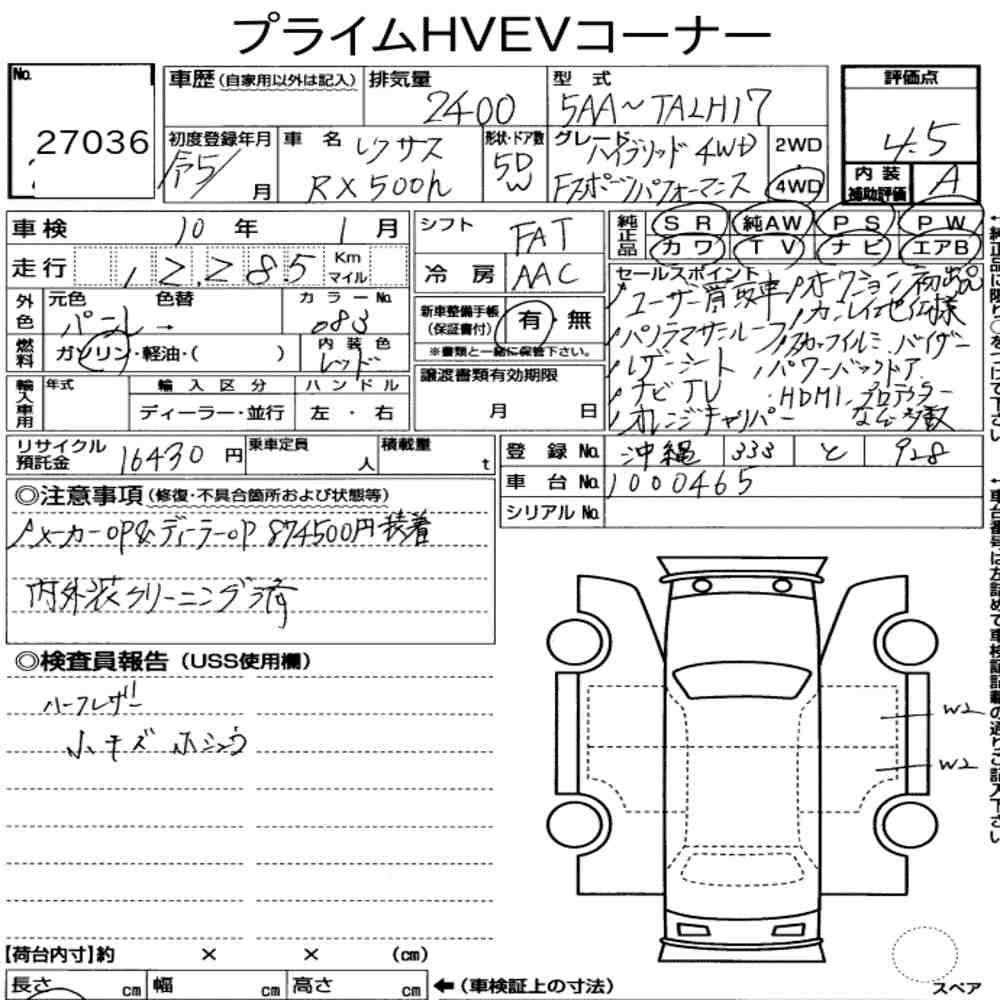 プライムHVEVコーナー
No.
27036
車歴(自家用以外は記入)
排気量
2400
型式
5AA~TALH17
評価点
4.5
初度登録年月
令5/
月
車名
レクサス
RX500h
形状・ドア数
5D
W
グレード
ハイブリッド 4WD
Fスポーツパフォーマンス
2WD
4WD
内装
補助評価
A
車検
10年
1月
走行
12,285
Km
マイル
外色
元色
パール
色替
→
カラーNo.
083
燃料
ガソリン・軽油・( )
内装色
レッド
輸入車用
年式
輸入区分
ディーラー・並行
ハンドル
左・右
シフト
FAT
冷房
AAC
新車整備手帳
(保証書付)
有・無
※書類と一緒に保管下さい。
譲渡書類有効期限
月 日
純正品
SR 純AW PS PW
カワ TV ナビ エアB
セールスポイント
ユーザー買取車 オークション初出品
カーレイ他仕様
パノラマサンルーフ スカッフイルミ バイザー
レザーシート パワーバックドア
ナビTV HDMI プロテクター
オレンジキャリパー など多数
←純正品に限り○をつけて下さい
リサイクル
預託金
16430円
乗車定員
人
積載量
t
登録No.
沖縄 333 と 928
車台No.
1000465
シリアルNo.
←車台番号は左詰めで車検証記載の通りご記入下さい
◎注意事項(修復・不具合箇所および状態等)
メーカーOP&ディーラーOP 874500円装着
内外装クリーニング済
◎検査員報告(USS使用欄)
ハーフレザー
小キズ ホシュウ
W2
W2
【荷台内寸】約 × × (cm)
長さ cm 幅 cm 高さ cm
←(車検証上の寸法)
スペア